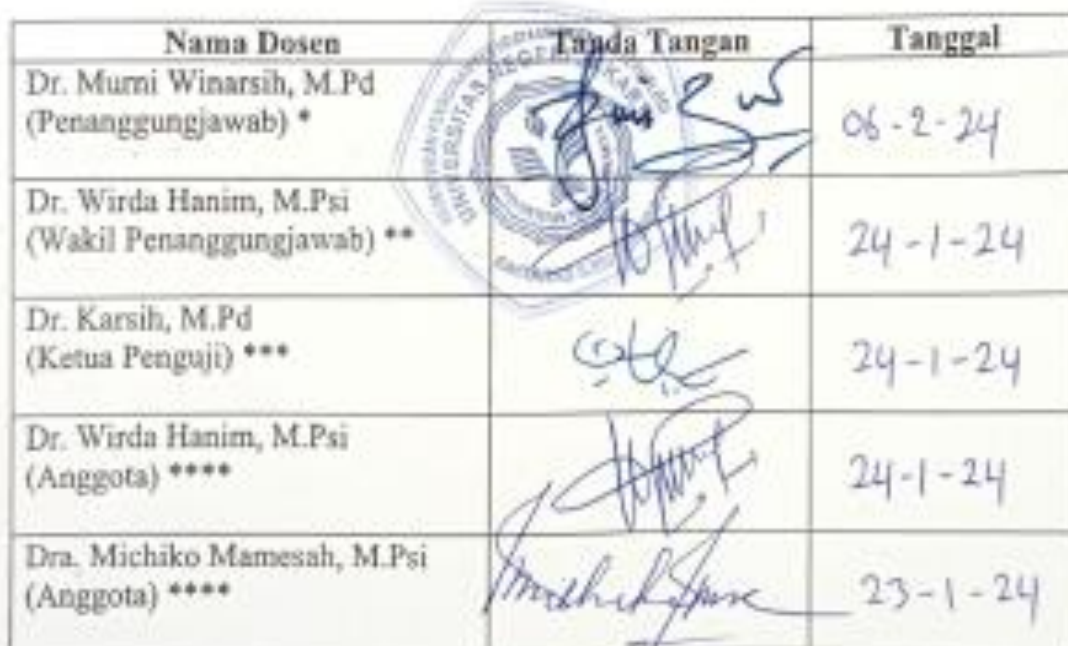 Nama Dosen Tanda Tangan Tanggal
Dr. Murni Winarsih, M.Pd
(Penanggungjawab) * 06-2-24
Dr. Wirda Hanim, M.Psi
(Wakil Penanggungjawab) ** 24-1-24
Dr. Karsih, M.Pd
(Ketua Penguji) *** 24-1-24
Dr. Wirda Hanim, M.Psi
(Anggota) **** 24-1-24
Dra. Michiko Mamesah, M.Psi
(Anggota) **** 23-1-24
UNIVERSITAS NEGERI